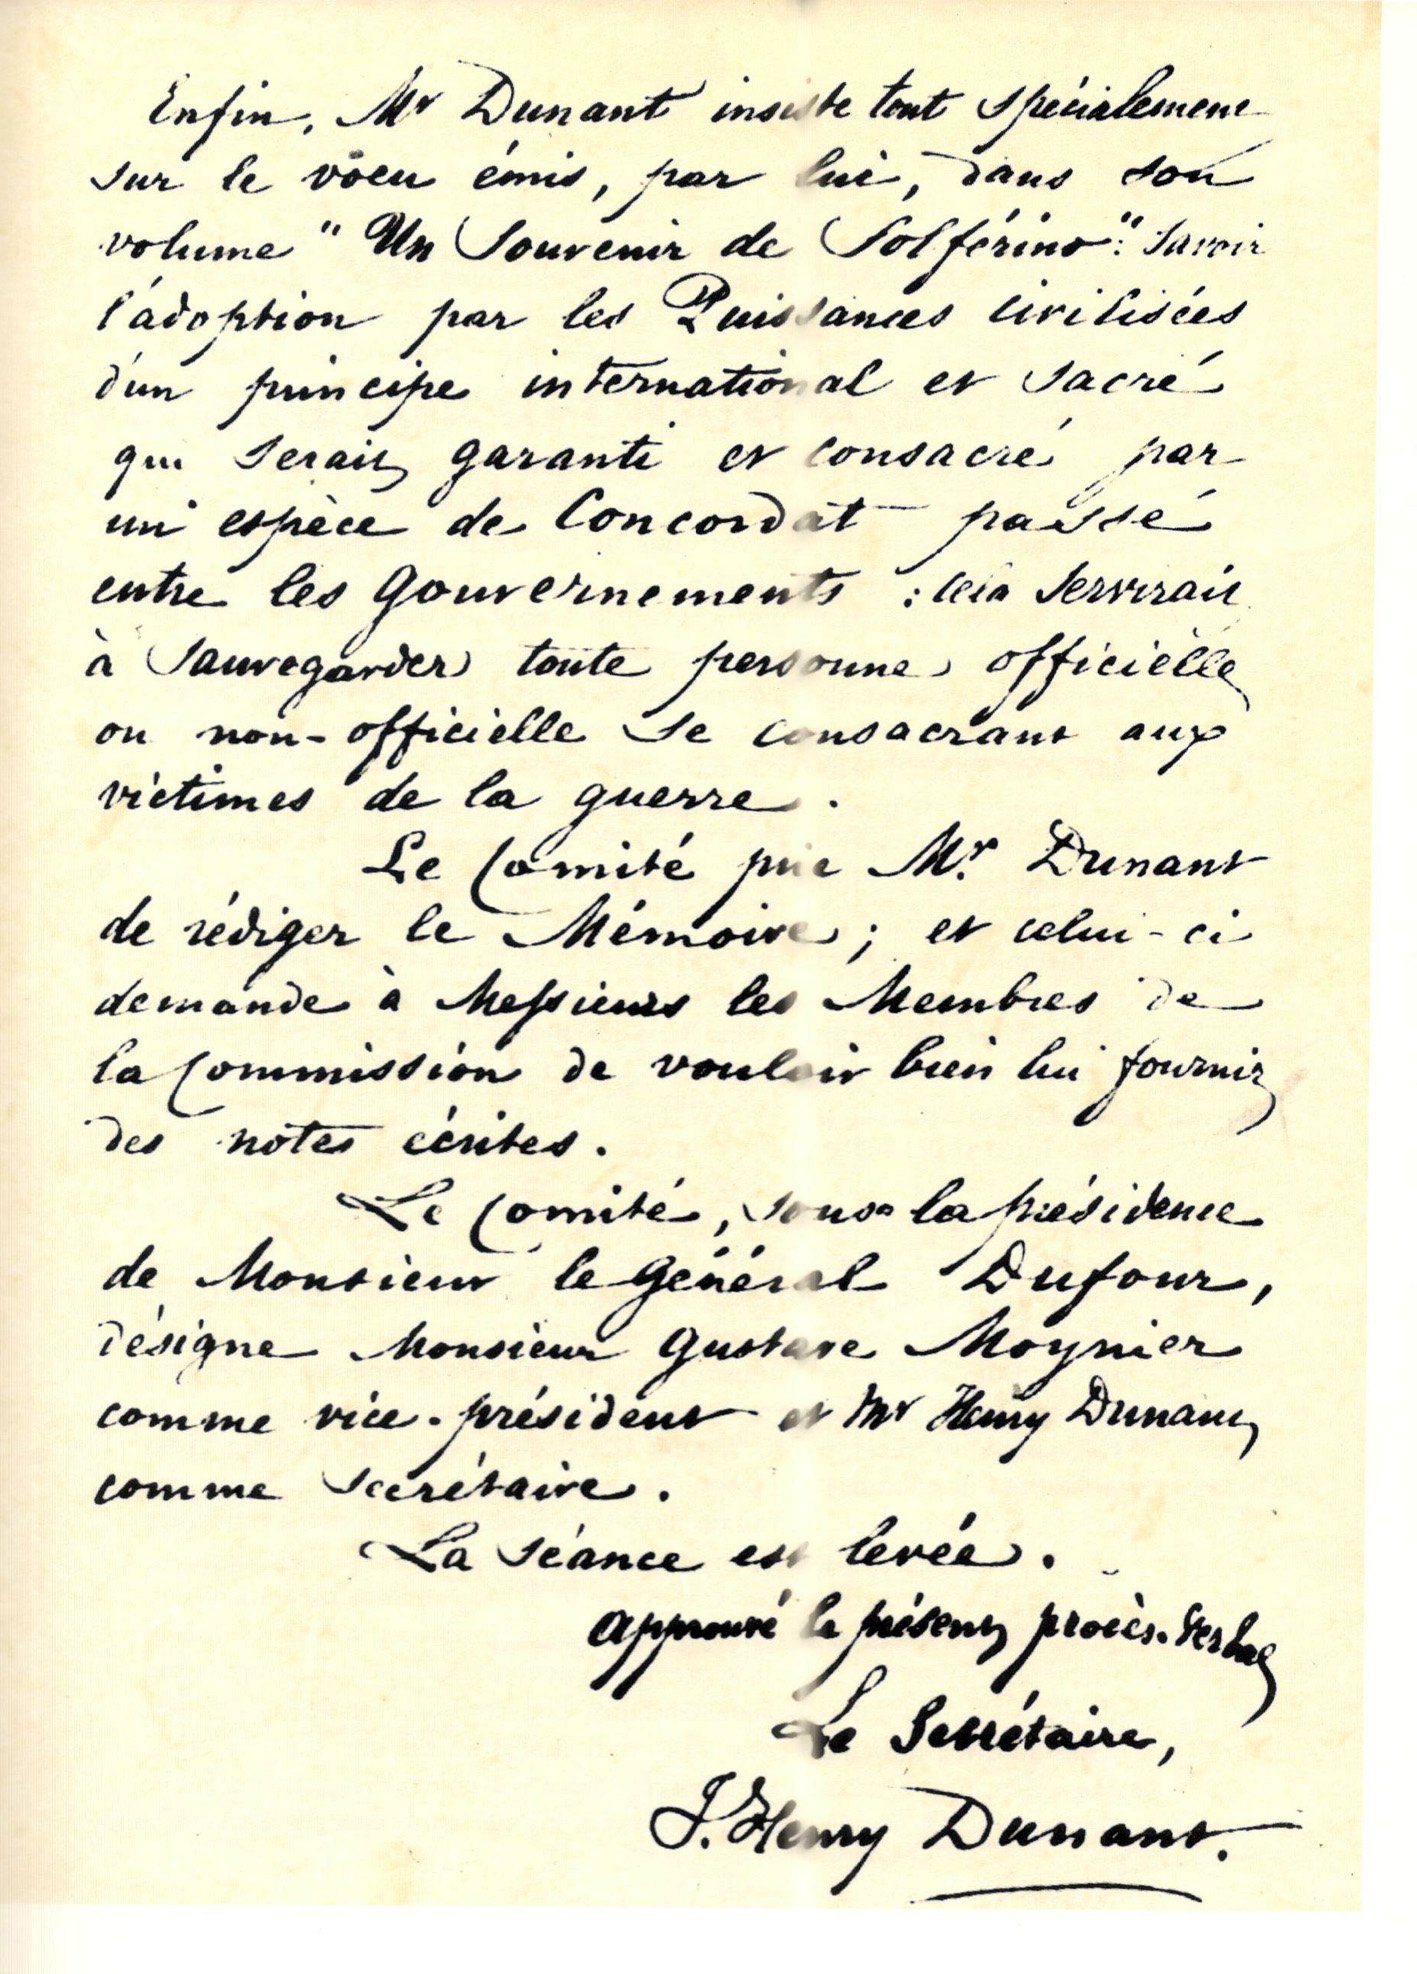 Enfin, Mr Dunant insiste tout spécialement
sur le vœu émis, par lui, dans son
volume "Un Souvenir de Solférino": savoir
l'adoption par les Puissances civilisées
d'un principe international et sacré
qui serait garanti et consacré par
un espèce de Concordat passé
entre les Gouvernements : cela servirait
à sauvegarder toute personne officielle
ou non-officielle se consacrant aux
victimes de la guerre.
Le Comité prie Mr. Dunant
de rédiger le Mémoire ; et celui-ci
demande à Messieurs les Membres de
la Commission de vouloir bien lui fournir
des notes écrites.
Le Comité, sous la présidence
de Monsieur le Général Dufour,
désigne Monsieur Gustave Moynier
comme vice-président et Mr Henry Dunant
comme secrétaire.
La séance est levée.
Approuvé le présent procès-verbal
Le Secrétaire,
J. Henry Dunant.